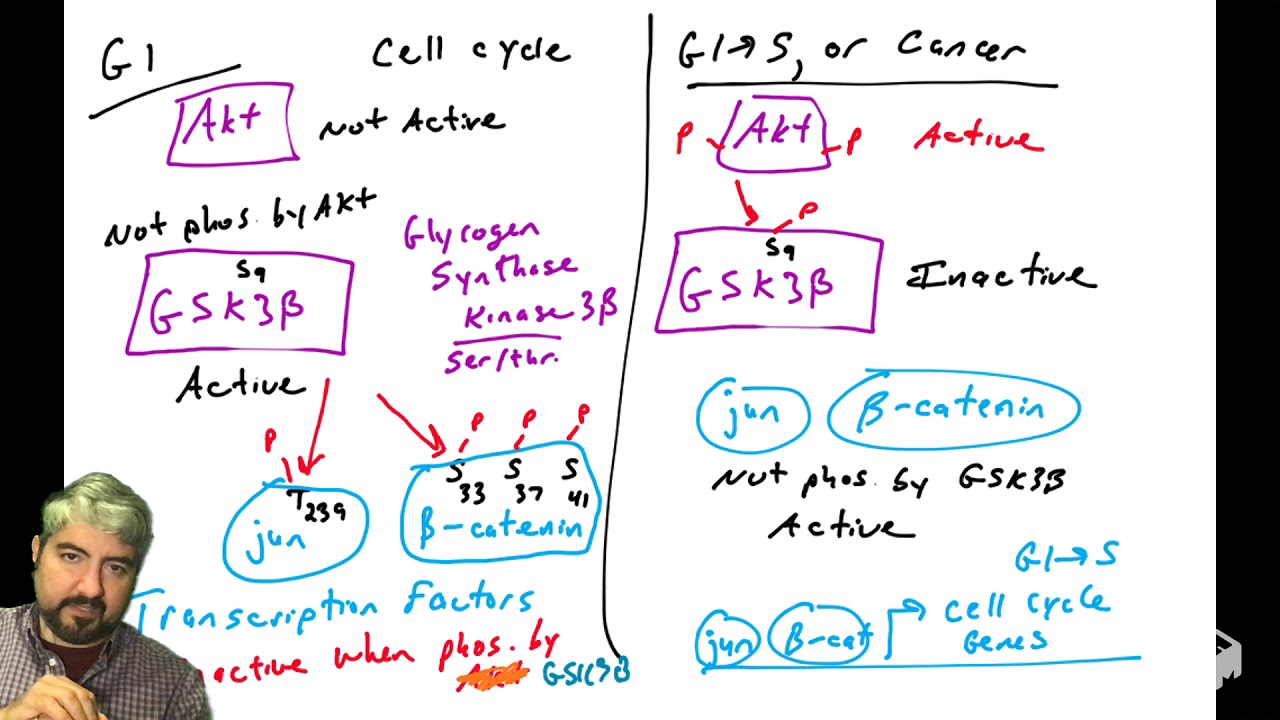 G1 Cell cycle
Akt Not Active
Not phos. by Akt
S9
GSK3β
Active
Glycogen
Synthase
Kinase 3β
Ser/thr.
P
T239
jun
P P P
S33 S37 S41
β-catenin
Transcription Factors
active when phos. by
GSK3β
G1→S, or Cancer
P Akt P Active
P
S9
GSK3β Inactive
jun β-catenin
Not phos. by GSK3β
Active
G1→S
jun β-cat cell cycle
Genes